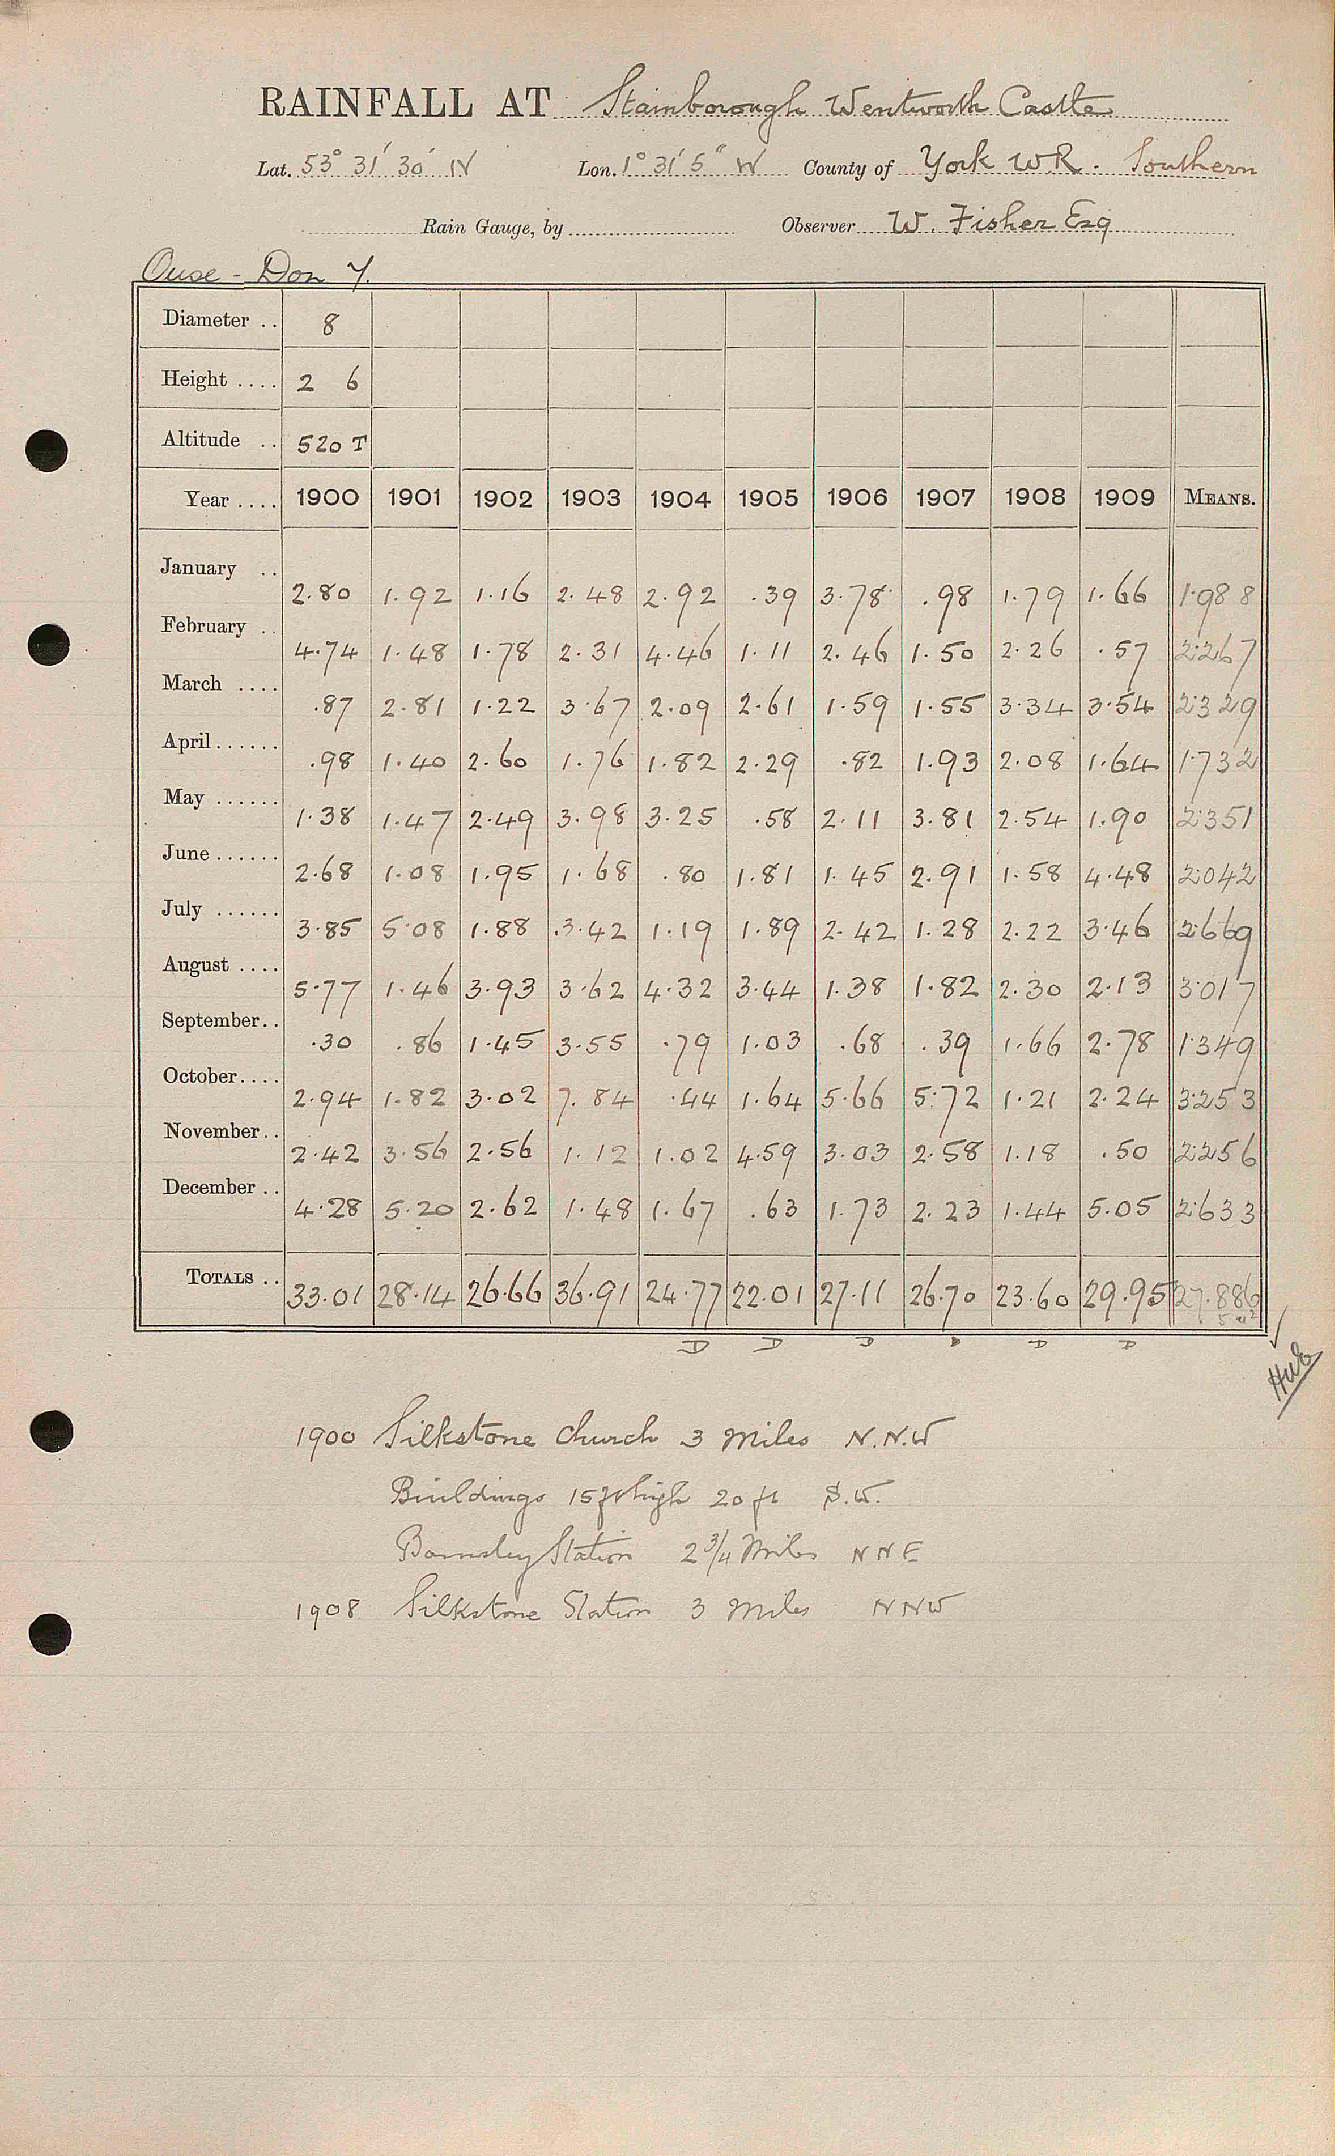 RAINFALL AT Stainborough Wentworth Castle
Lat. 53° 31' 30" N Lon. 1° 31' 5" W County of York W.R. Southern
Rain Gauge, by Observer W. Fisher Esq
Ouse - Don 7.
Diameter .. 8
Height .... 2 6
Altitude .. 520 T
Year .... 1900 1901 1902 1903 1904 1905 1906 1907 1908 1909 MEANS.
January .. 2.80 1.92 1.16 2.48 2.92 .39 3.78 .98 1.79 1.66 1.988
February .. 4.74 1.48 1.78 2.31 4.46 1.11 2.46 1.50 2.26 .57 2.267
March .... .87 2.81 1.22 3.67 2.09 2.61 1.59 1.55 3.34 3.54 2.329
April ...... .98 1.40 2.60 1.76 1.82 2.29 .82 1.93 2.08 1.64 1.732
May ...... 1.38 1.47 2.49 3.98 3.25 .58 2.11 3.81 2.54 1.90 2.351
June ...... 2.68 1.08 1.95 1.68 .80 1.81 1.45 2.91 1.58 4.48 2.042
July ...... 3.85 5.08 1.88 3.42 1.19 1.89 2.42 1.28 2.22 3.46 2.669
August .... 5.77 1.46 3.93 3.62 4.32 3.44 1.38 1.82 2.30 2.13 3.017
September .. .30 .86 1.45 3.55 .79 1.03 .68 .39 1.66 2.78 1.349
October .... 2.94 1.82 3.02 7.84 .44 1.64 5.66 5.72 1.21 2.24 3.253
November .. 2.42 3.56 2.56 1.12 1.02 4.59 3.03 2.58 1.18 .50 2.256
December .. 4.28 5.20 2.62 1.48 1.67 .63 1.73 2.23 1.44 5.05 2.633
TOTALS .. 33.01 28.14 26.66 36.91 24.77 22.01 27.11 26.70 23.60 29.95 27.886
D D D D D D
1900 Silkstone Church 3 Miles N.N.W
Buildings 15 ft high 20 ft S.W.
Barnsley Station 2 3/4 Miles N N E
1908 Silkstone Station 3 Miles N N W